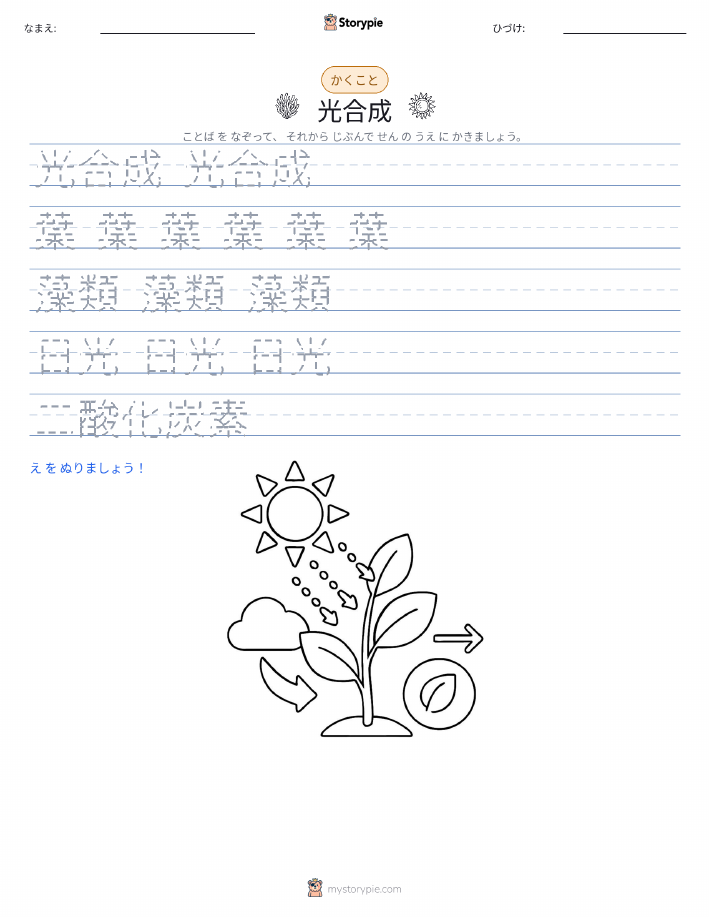 なまえ:
Storypie
ひづけ:
かくこと
光合成
ことば を なぞって、 それから じぶんで せん の うえ に かきましょう。
光合成 光合成
葉 葉 葉 葉 葉 葉
藻類 藻類 藻類
日光 日光 日光
二酸化炭素
え を ぬりましょう！
mystorypie.com